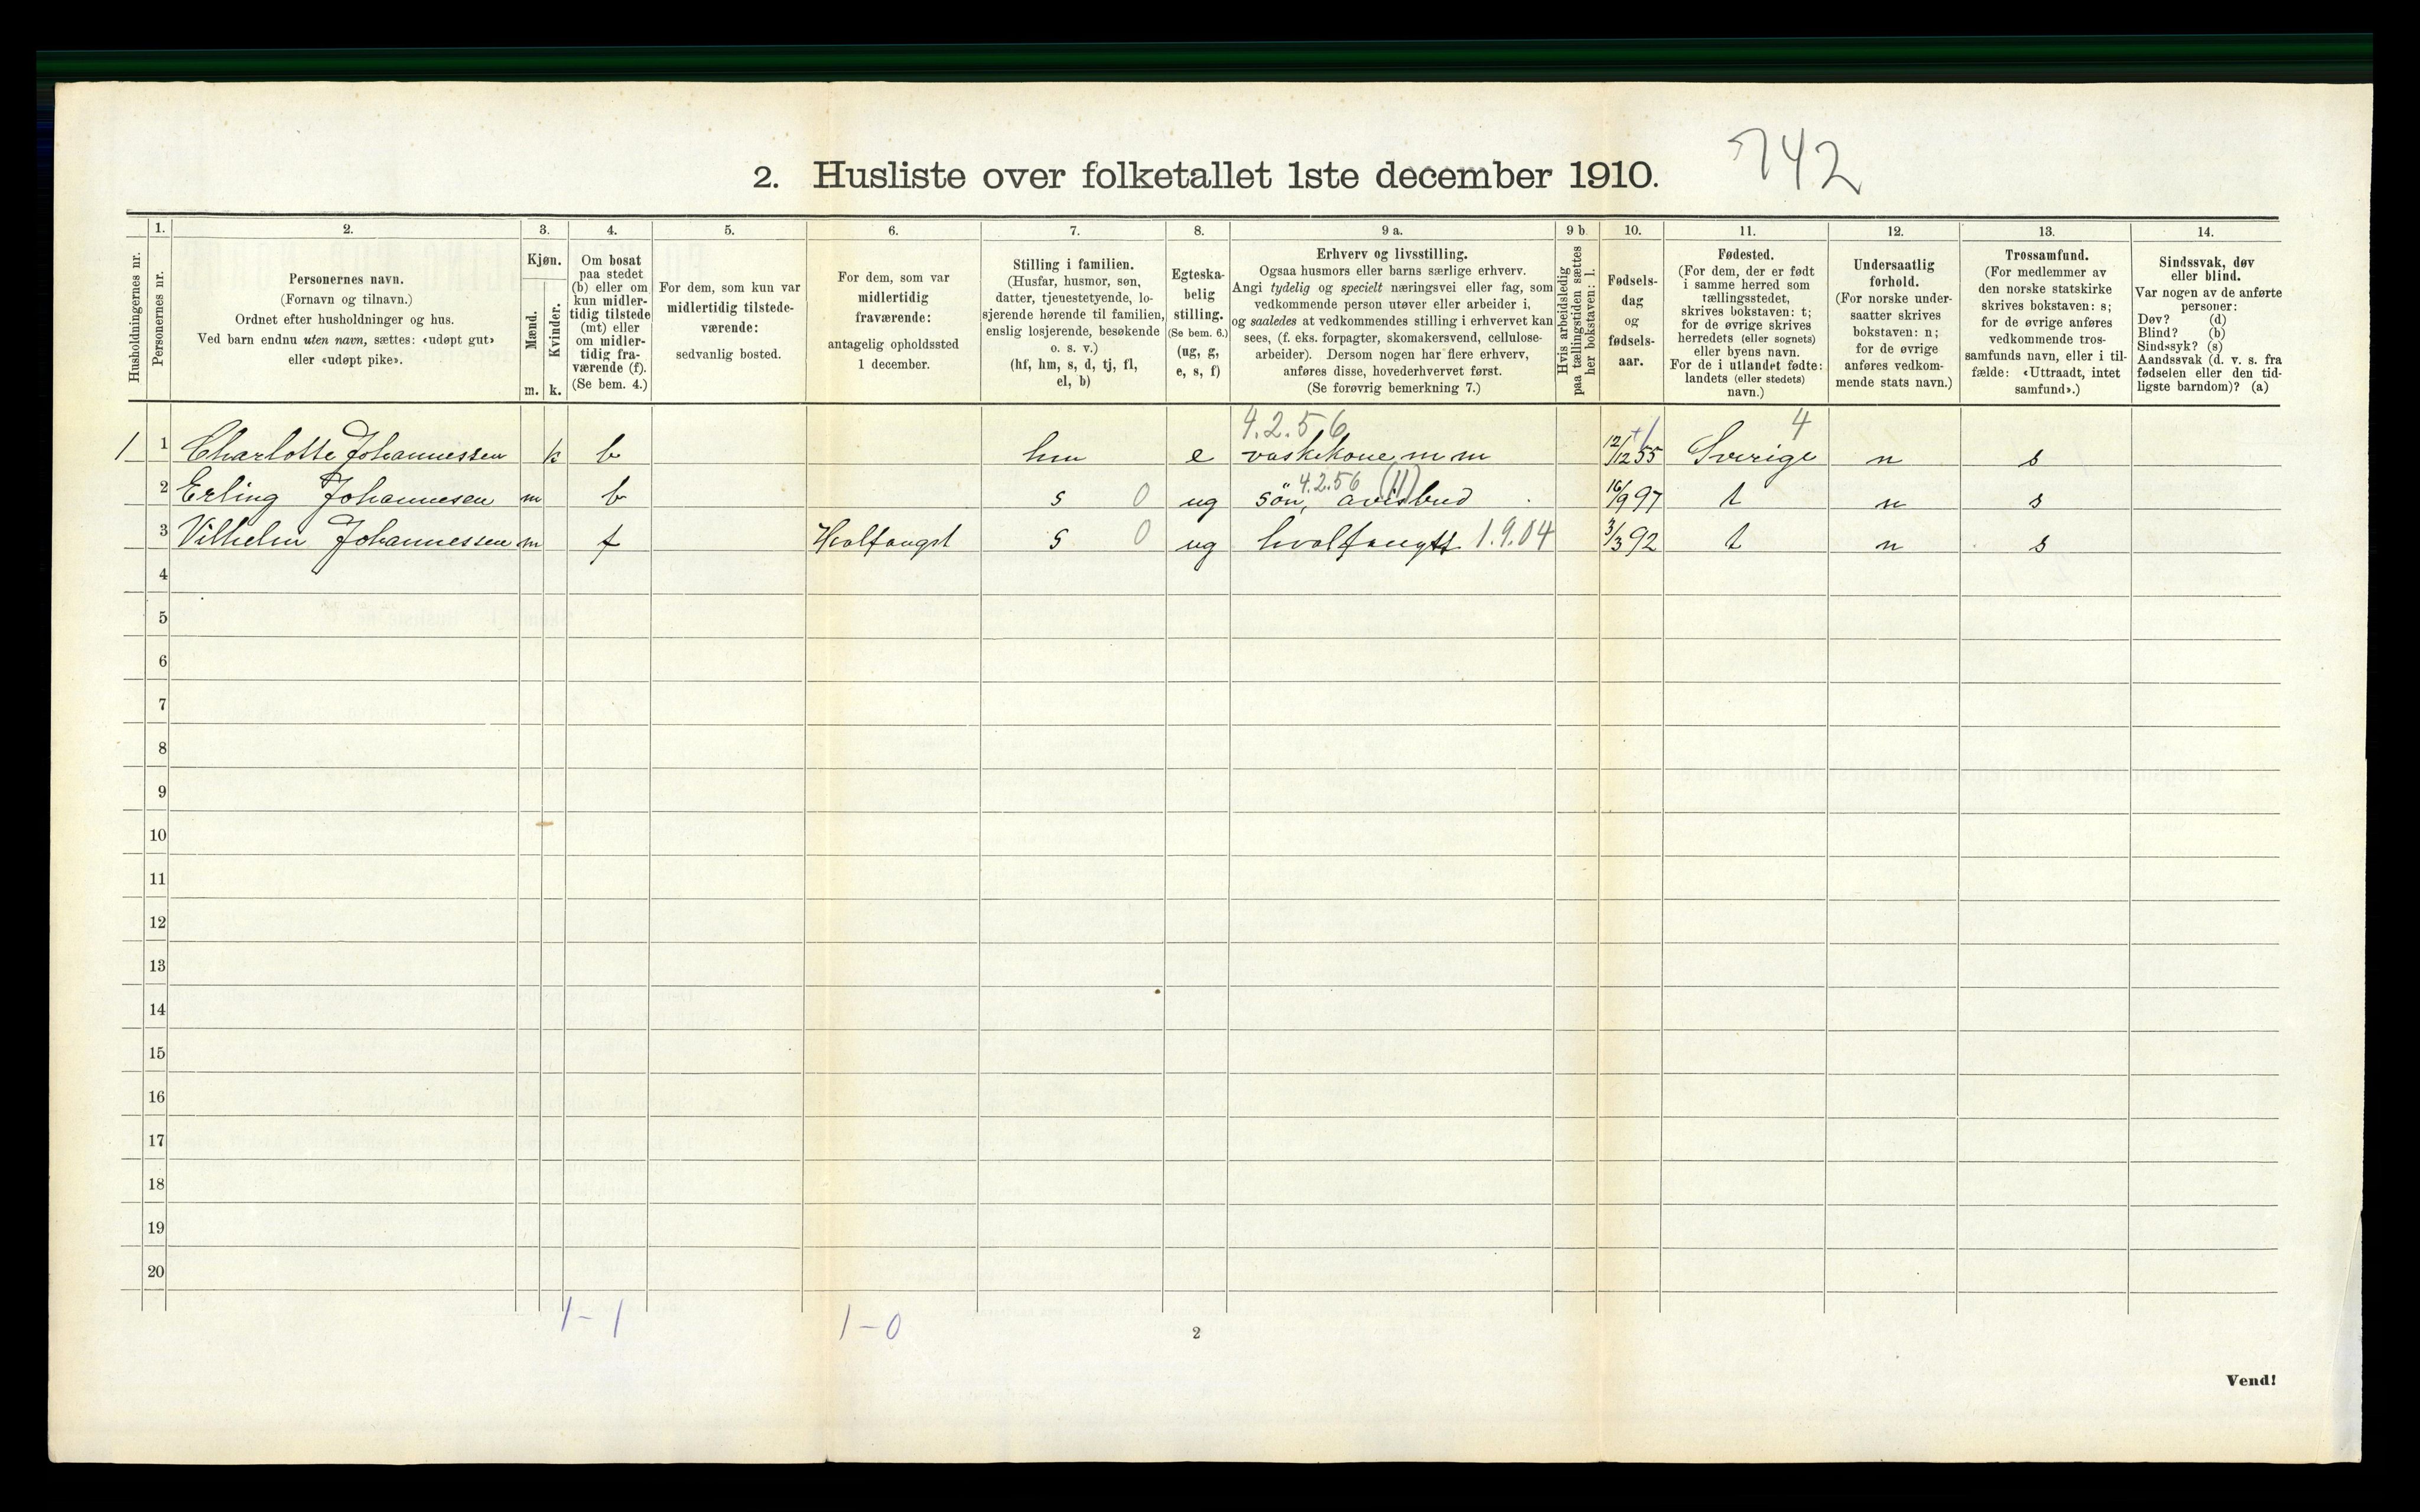 2. Husliste over folketallet 1ste december 1910. 742
1. 2. 3. 4. 5. 6. 7. 8. 9 a. 9 b. 10. 11. 12. 13. 14.
Husholdningernes nr.
Personernes nr.
Personernes navn.
(Fornavn og tilnavn.)
Ordnet efter husholdninger og hus.
Ved barn endnu uten navn, sættes: «udøpt gut»
eller «udøpt pike».
Kjøn.
Mænd.
m.
Kvinder.
k.
Om bosat
paa stedet
(b) eller om
kun midler-
tidig tilstede
(mt) eller
om midler-
tidig fra-
værende (f).
(Se bem. 4.)
For dem, som kun var
midlertidig tilstede-
værende:
sedvanlig bosted.
For dem, som var
midlertidig
fraværende:
antagelig opholdssted
1 december.
Stilling i familien.
(Husfar, husmor, søn,
datter, tjenestetyende, lo-
sjerende hørende til familien,
enslig losjerende, besøkende
o. s. v.)
(hf, hm, s, d, tj, fl,
el, b)
Egteska-
belig
stilling.
(Se bem. 6.)
(ug, g,
e, s, f)
Erhverv og livsstilling.
Ogsaa husmors eller barns særlige erhverv.
Angi tydelig og specielt næringsvei eller fag, som
vedkommende person utøver eller arbeider i,
og saaledes at vedkommendes stilling i erhvervet kan
sees, (f. eks. forpagter, skomakersvend, cellulose-
arbeider). Dersom nogen har flere erhverv,
anføres disse, hovederhvervet først.
(Se forøvrig bemerkning 7.)
Hvis arbeidsledig
paa tællingstiden sættes
her bokstaven: l.
Fødsels-
dag
og
fødsels-
aar.
Fødested.
(For dem, der er født
i samme herred som
tællingsstedet,
skrives bokstaven: t;
for de øvrige skrives
herredets (eller sognets)
eller byens navn.
For de i utlandet fødte:
landets (eller stedets)
navn.)
Undersaatlig
forhold.
(For norske under-
saatter skrives
bokstaven: n;
for de øvrige
anføres vedkom-
mende stats navn.)
Trossamfund.
(For medlemmer av
den norske statskirke
skrives bokstaven: s;
for de øvrige anføres
vedkommende tros-
samfunds navn, eller i til-
fælde: «Uttraadt, intet
samfund».)
Sindssvak, døv
eller blind.
Var nogen av de anførte
personer:
Døv? (d)
Blind? (b)
Sindssyk? (s)
Aandssvak (d. v. s. fra
fødselen eller den tid-
ligste barndom)? (a)
4.2.5.6 4
1 1 Charlotte Johannessen k b hm e vaskekone m m 12/12 55 Sverige n s
4.2.56 (11)
2 Erling Johannesen m b s 0 ug søn, avisbud 16/9 97 t n s
3 Vilhelm Johannessen m f Hvalfangst s 0 ug hvalfangst 1.9.04 3/3 92 t n s
4
5
6
7
8
9
10
11
12
13
14
15
16
17
18
19
20
1-1 1-0
2
Vend!